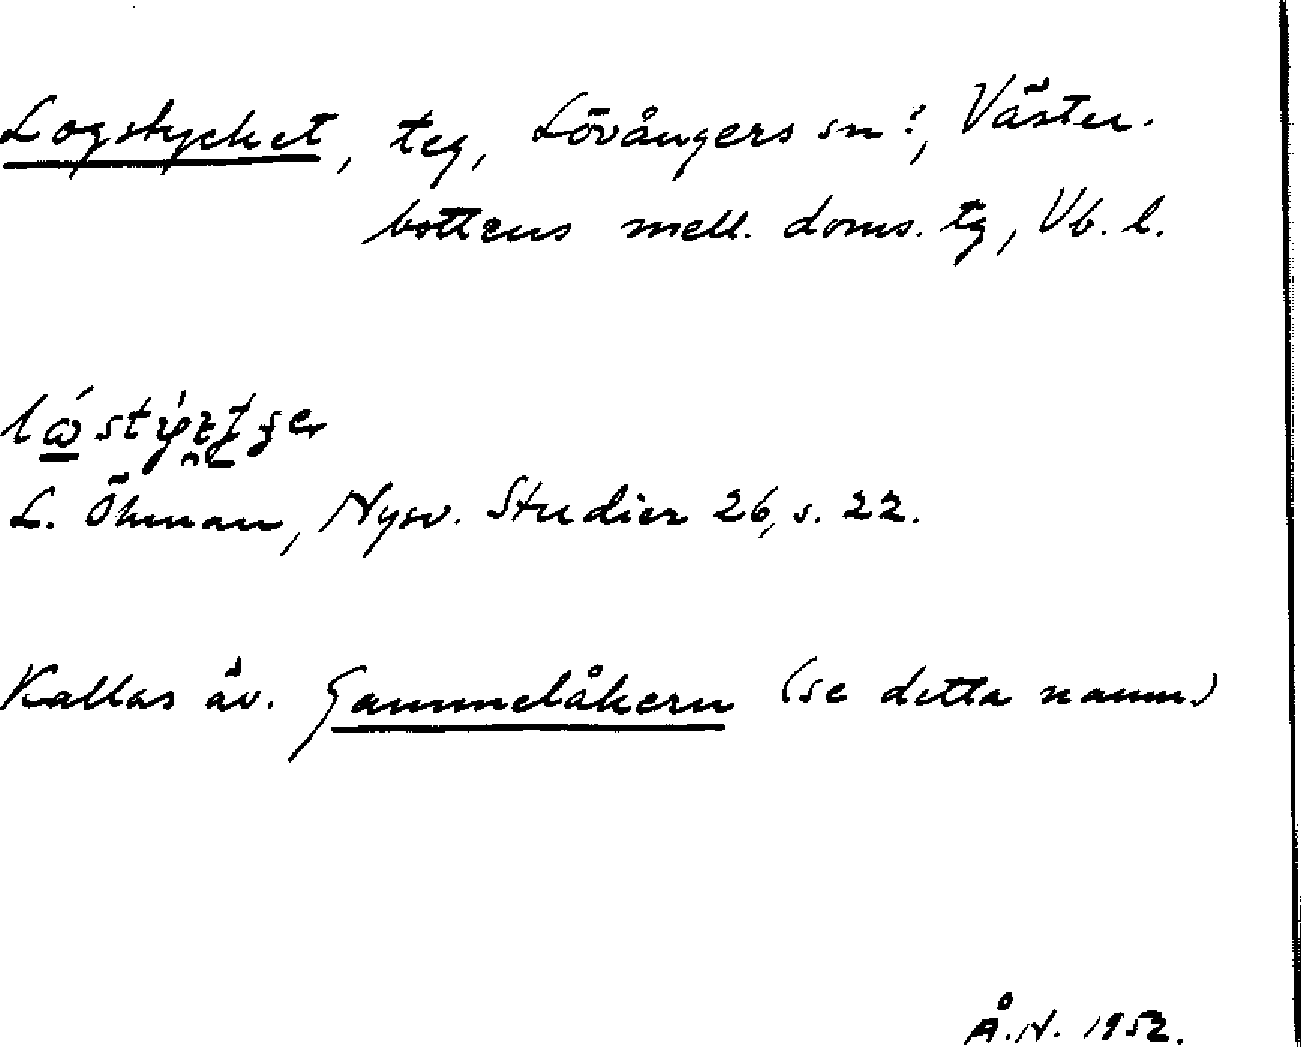 Logstycket, teg, Lövångers sn?, Väster-
bottens mell. doms. tg, Vb. l.
L. Öhman, Nysv. Studier 26, s. 22.
Kallas äv. Gammelåkern (se detta namn)
Å.N. 1952.